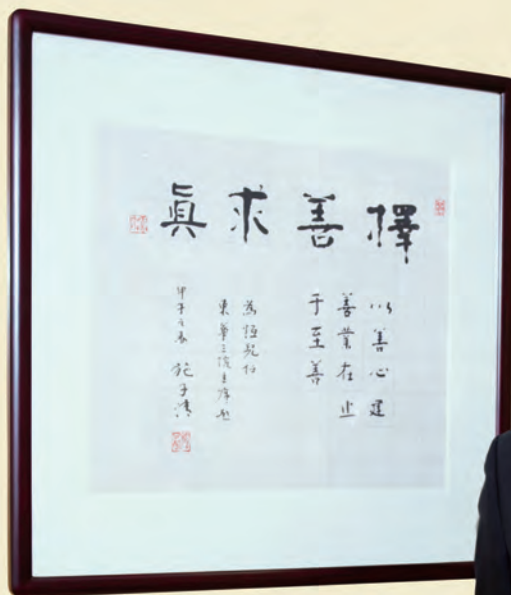 擇善求眞
以善心建
善業在止
于至善
為恆兒任
東華三院主席題
甲午之春 施子清